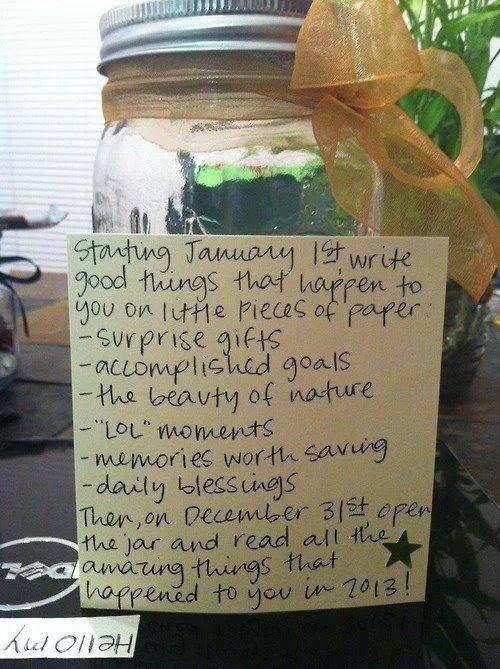 Starting January 1st, write
good things that happen to
you on little pieces of paper:
- surprise gifts
- accomplished goals
- the beauty of nature
- "LOL" moments
- memories worth saving
- daily blessings
Then, on December 31st, open
the jar and read all the
amazing things that
happened to you in 2013!
DELL
Hello my